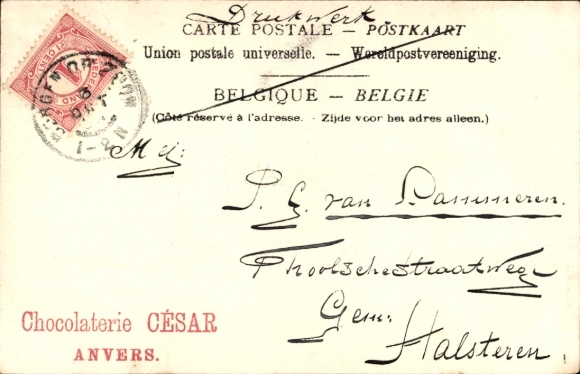 Drukwerk
CARTE POSTALE — POSTKAART
Union postale universelle. — Wereldpostvereeniging.
BELGIQUE — BELGIE
(Côté réservé à l'adresse. - Zijde voor het adres alleen.)
BERGEN OP ZOOM
1-2N
NEDERLAND
1 CENT
Mej:
P. G. van Dammeren.
Tholschestraatweg
Gem:
Halsteren
Chocolaterie CÉSAR
ANVERS.